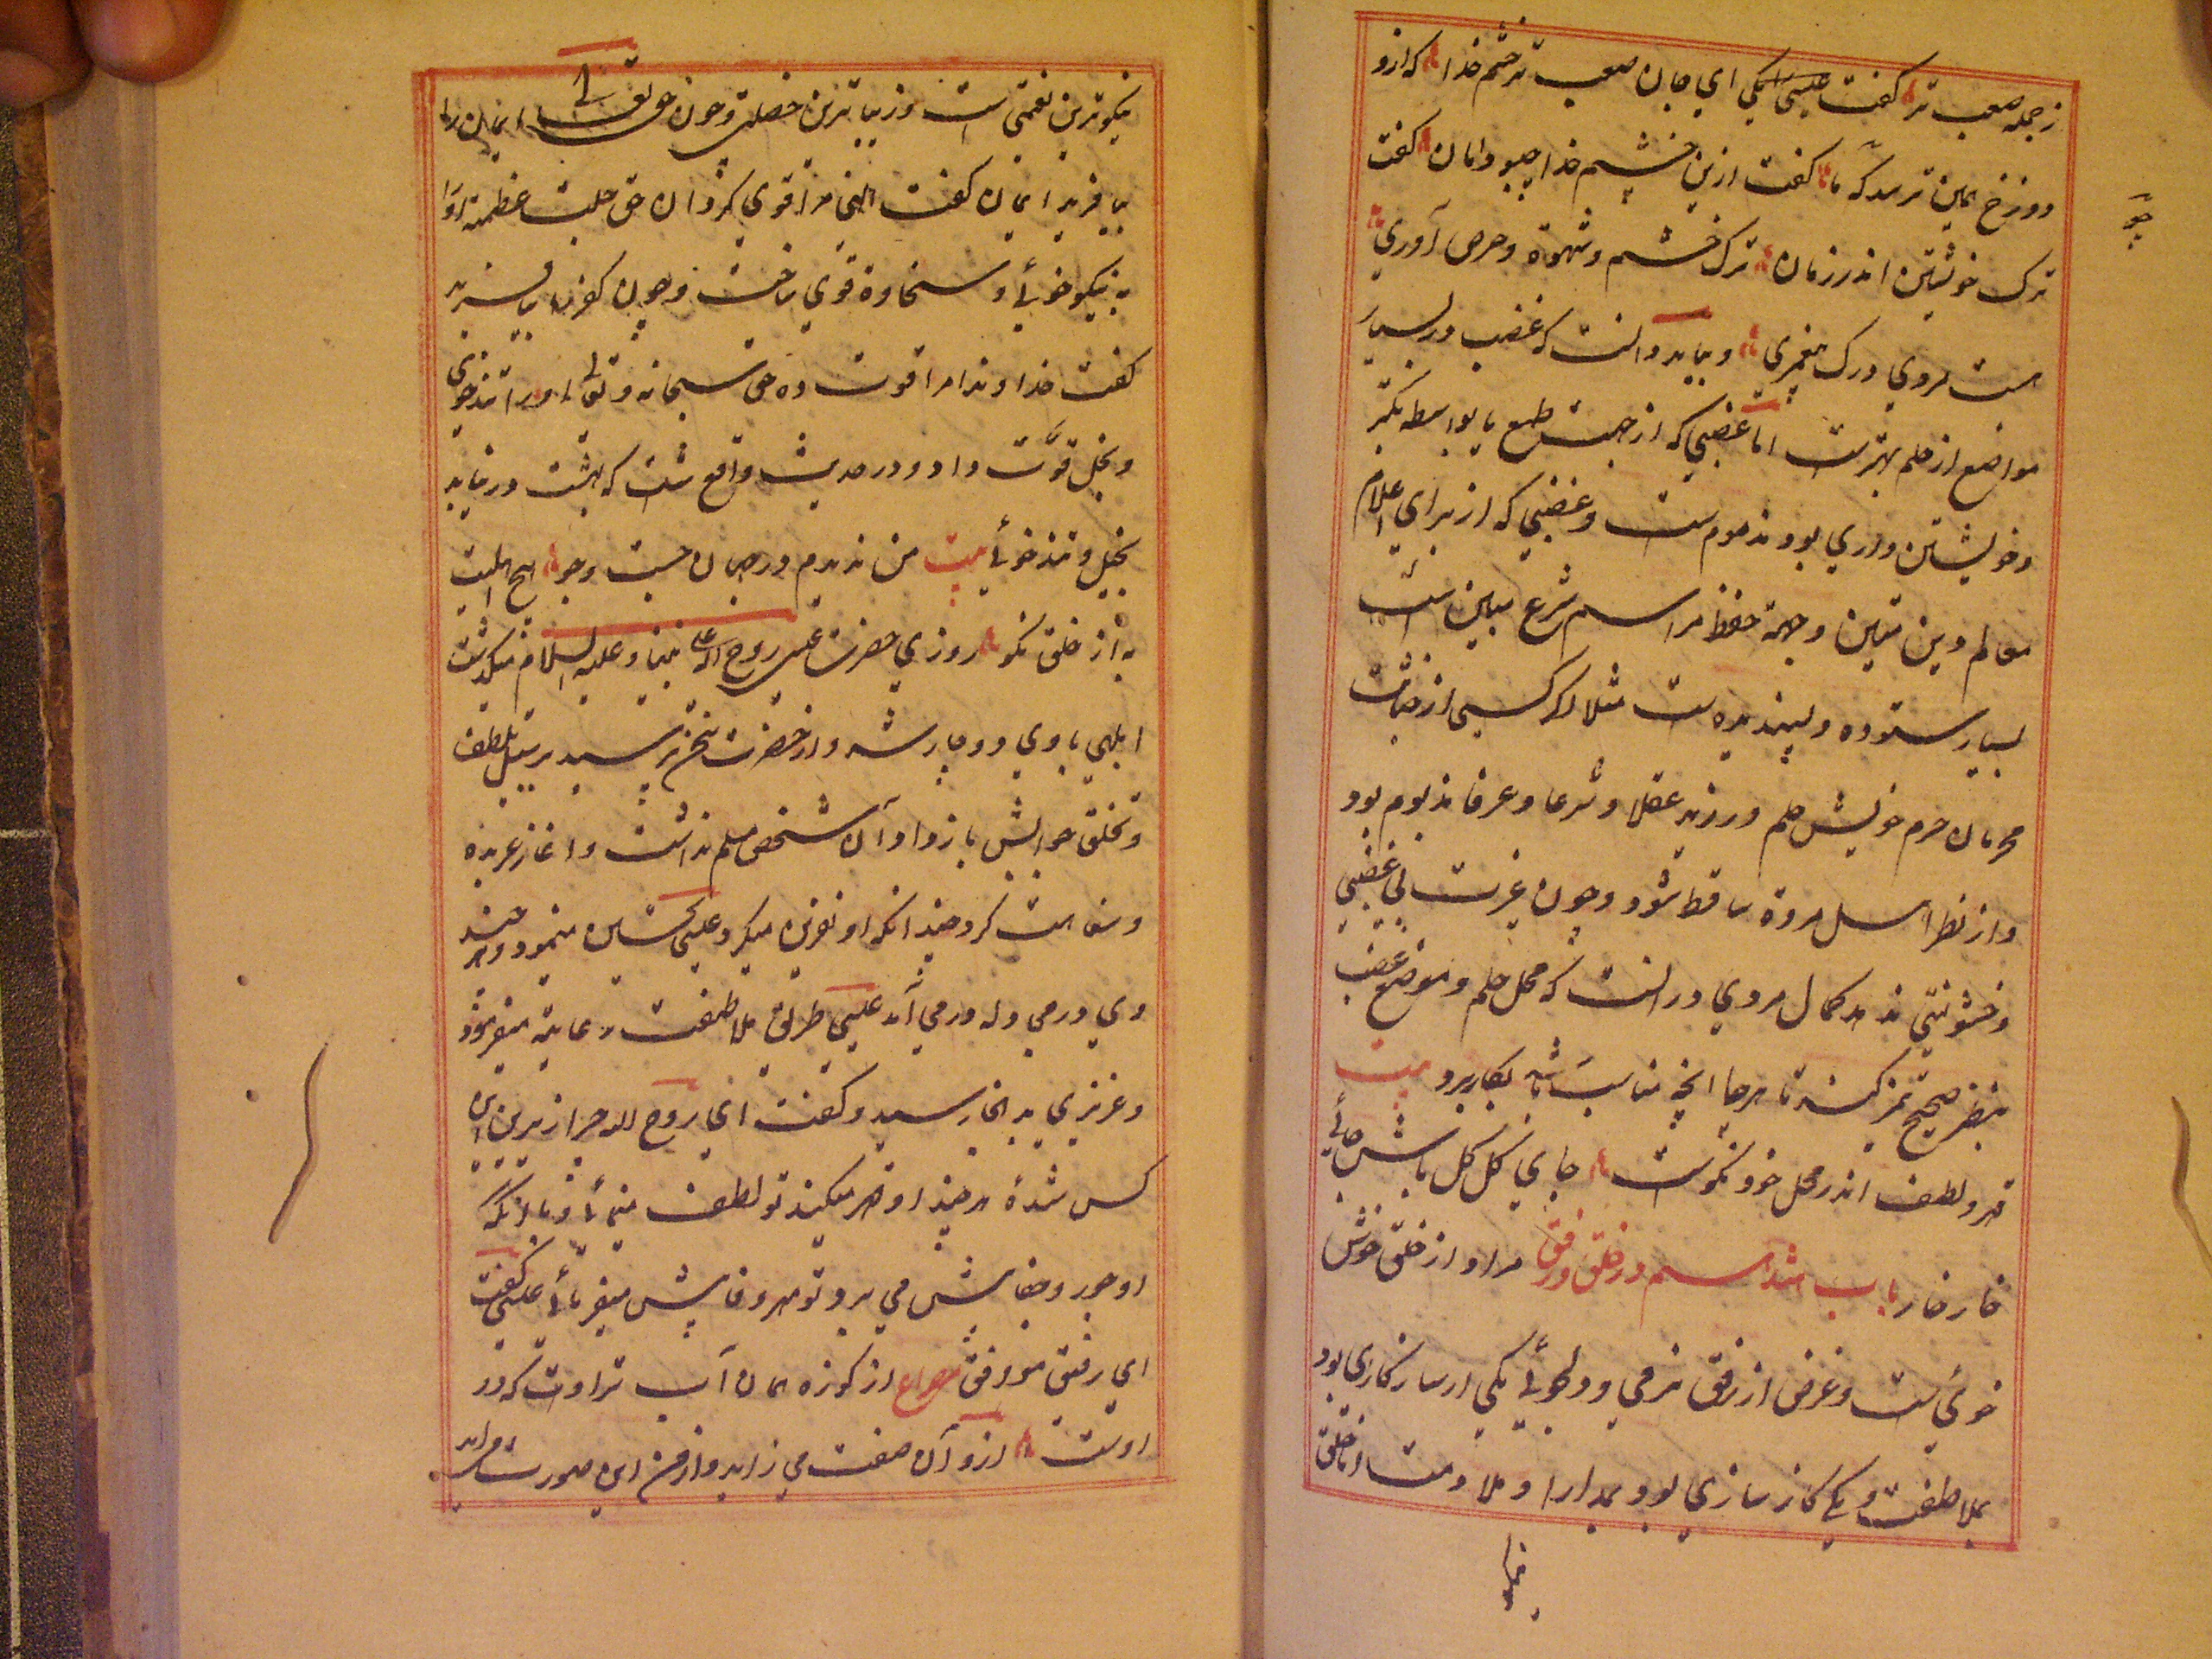 ز جمله صعب تر گفت عیسی کای جان صعب تر خشم خدا که ازو
دوزخ همی ترسد که ما گفت ازین خشم خدا چبود امان گفت
ترک خویشتن اندر زمان ترک خشم و شهوة و حرص آوری
هست مردی و رک پیغمبری و بباید دانست که غضب در بسیار
مواضع از حلم بهترست اما غضبی که از جهت طمع یا بواسطه تکبر
و خویشتن داری بود مذموم ست و غضبی که از برای اعلام
معالم دین متین و جهة حفظ مراسم شرع مبین است
بسیار ستوده و پسندیده ست مثلا اگر کسی از جهات
محرمان حرم خویش حلم ورزید عقلا و شرعا و عرفا مذموم بود
و از نظر اهل مروة ساقط شود و چون غیرت بی غضبی
و خشونتی ندهد کمال مردی در انست که محل حلم و موضع غضب
بنظر صحیح تمیز کند تا هر جا انچه مناسب باشد بکار برد بیت
قهر و لطف اندر محل خود نکوست جای گل گل باش جائی
خار خار باب هشدهم در خلق و رفق مراد از خلق خوش
خوئی ست و غرض از رفق نرمی و دلجوئی یکی از سازکاری بود
بملاطفت و یکی کارسازی بود بمدارا و ملاومت اما خلق
نیکو
نیکوترین نعمتی است و زیباترین خصلتی و چون حق تعالی ایمان را
بیافرید ایمان گفت الهی مرا قوی گردان حق جلت عظمته او را
به نیکوخوئی و سخاوة قوی ساخت و چون کفر را بیافرید
گفت خداوندا مرا قوت ده حق سبحانه و تعالی او را تندخوی
و بخل قوّت داد و در حدیث واقع شده که بهشت در نیاید
بخیل و تندخوئی بیت من ندیدم در جهان جست و جو هیچ اهلیت
به از خلق نکو روزی حضرت عیسی روح الله علی نبینا و علیه السلام میگذشت
ابلهی با وی دوچار شد و از حضرت سخن پرسید بر سبیل تلطف
و تخلق جوابش باز داد آن شخص مسلم نداشت و اغاز عربده
و سفاهت کرد چندانکه او نفرین میکرد عیسی تحسین مینمود و هر چند
وی درمی و له درمی آمد عیسی طریق ملاطفت رعایته میفرمود
و عزیزی بد انجا رسید و گفت ای روح الله چرا زبون این
کس شدهٔ هر چند او قهر میکند تو لطف مینمائی و با انکه
او جور و جفا پیش می برد تو مهر و وفا پیش میفرمائی عیسی گفت
ای رفیق موافق مصراع از کوزه همان آب تراود که در
اوست ازو آن صفت می زاید و از من این صورت می اید